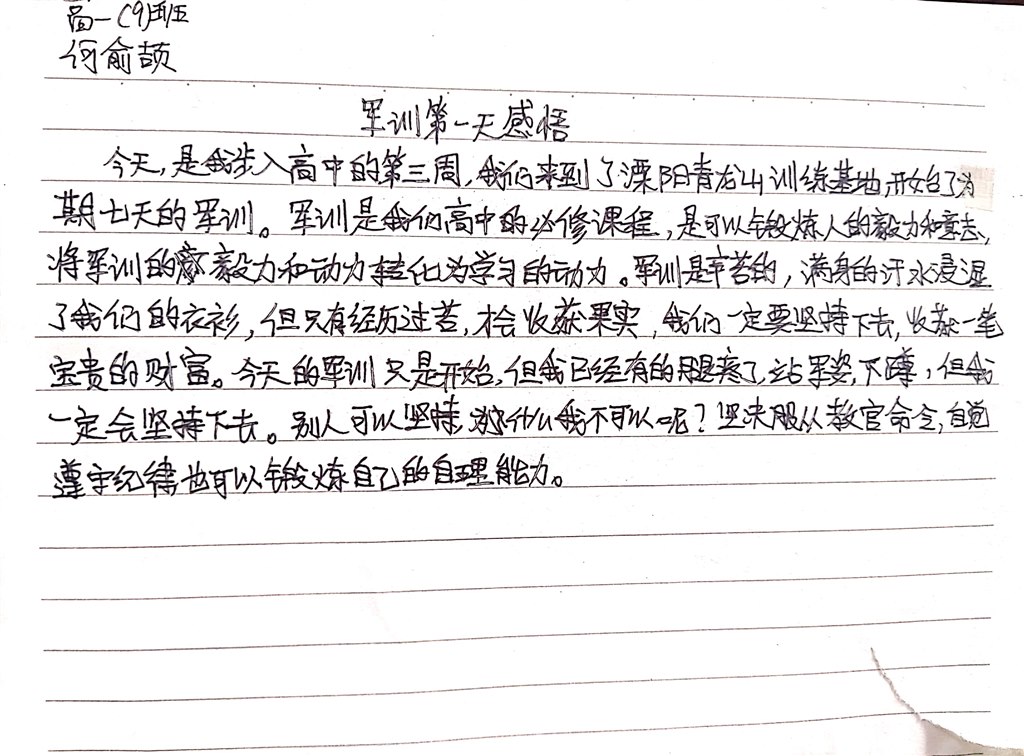 高一(9)班
何俞颉
军训第一天感悟
今天,是我步入高中的第三周,我们来到了溧阳青龙山训练基地,开始了为
期七天的军训。军训是我们高中的必修课程,是可以锻炼人的毅力和意志,
将军训的毅力和动力转化为学习的动力。军训是辛苦的,满身的汗水浸湿
了我们的衣衫,但只有经历过苦,才会收获果实,我们一定要坚持下去,收获一笔
宝贵的财富。今天的军训只是开始,但我已经有的腿疼了,站军姿,下蹲,但我
一定会坚持下去。别人可以坚持,为什么我不可以呢?坚决服从教官命令,自觉
遵守纪律也可以锻炼自己的自理能力。